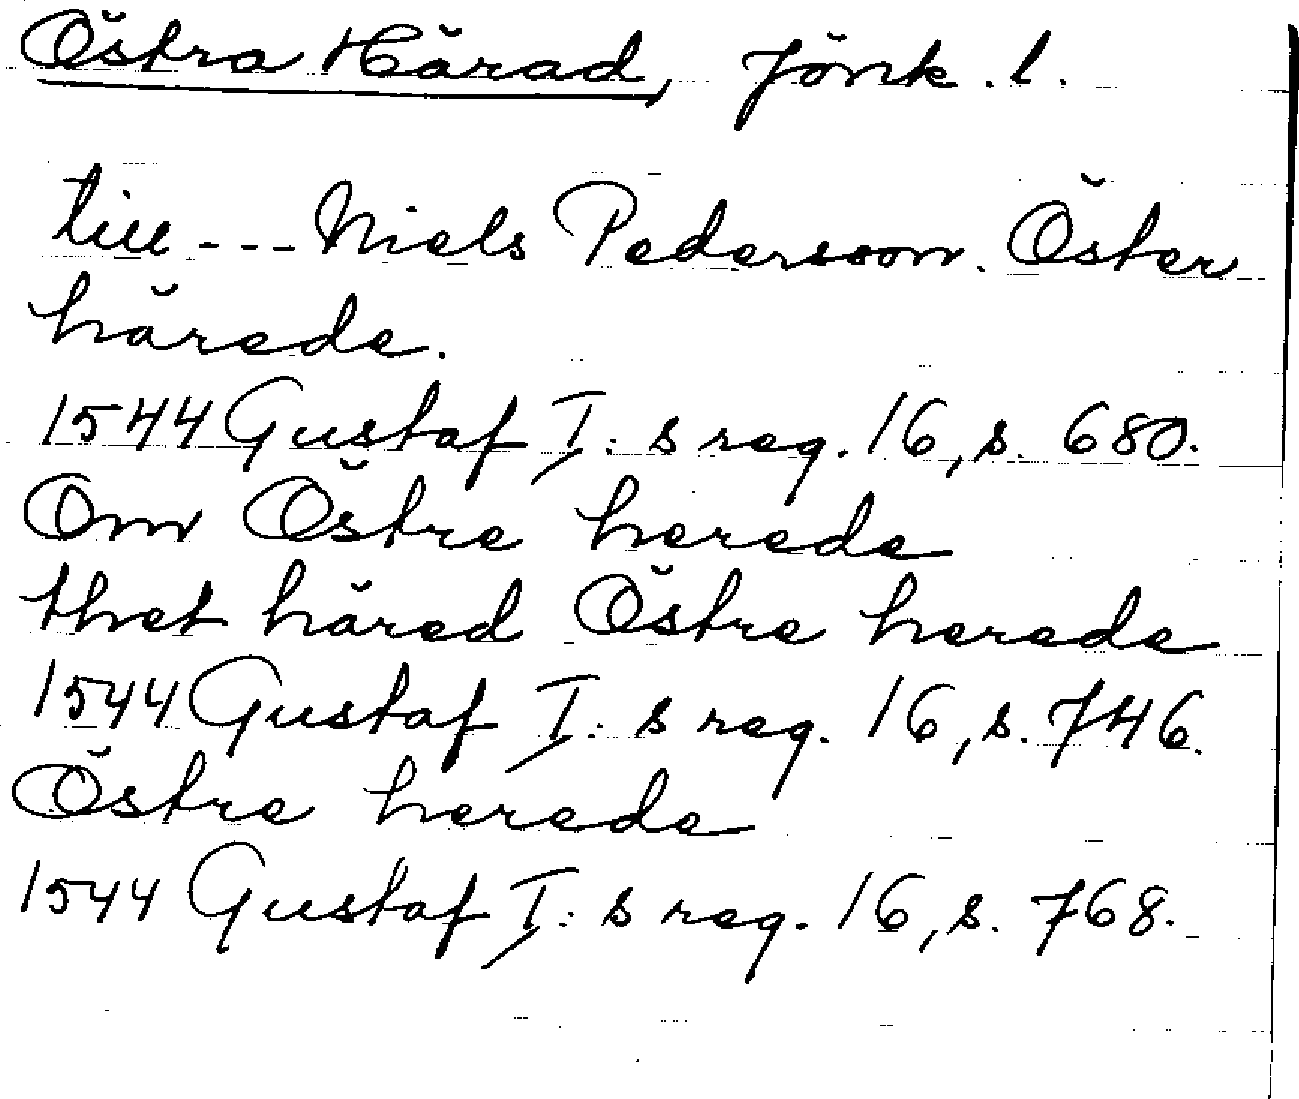 Östra Härad, Jönk. l.
till --- Niels Pedersson. Öster
härede.
1544 Gustaf I: s reg. 16, s. 680.
Om Östre herede
thet häred Östre herede
1544 Gustaf I: s reg. 16, s. 746.
Östre herede
1544 Gustaf I: s reg. 16, s. 768.